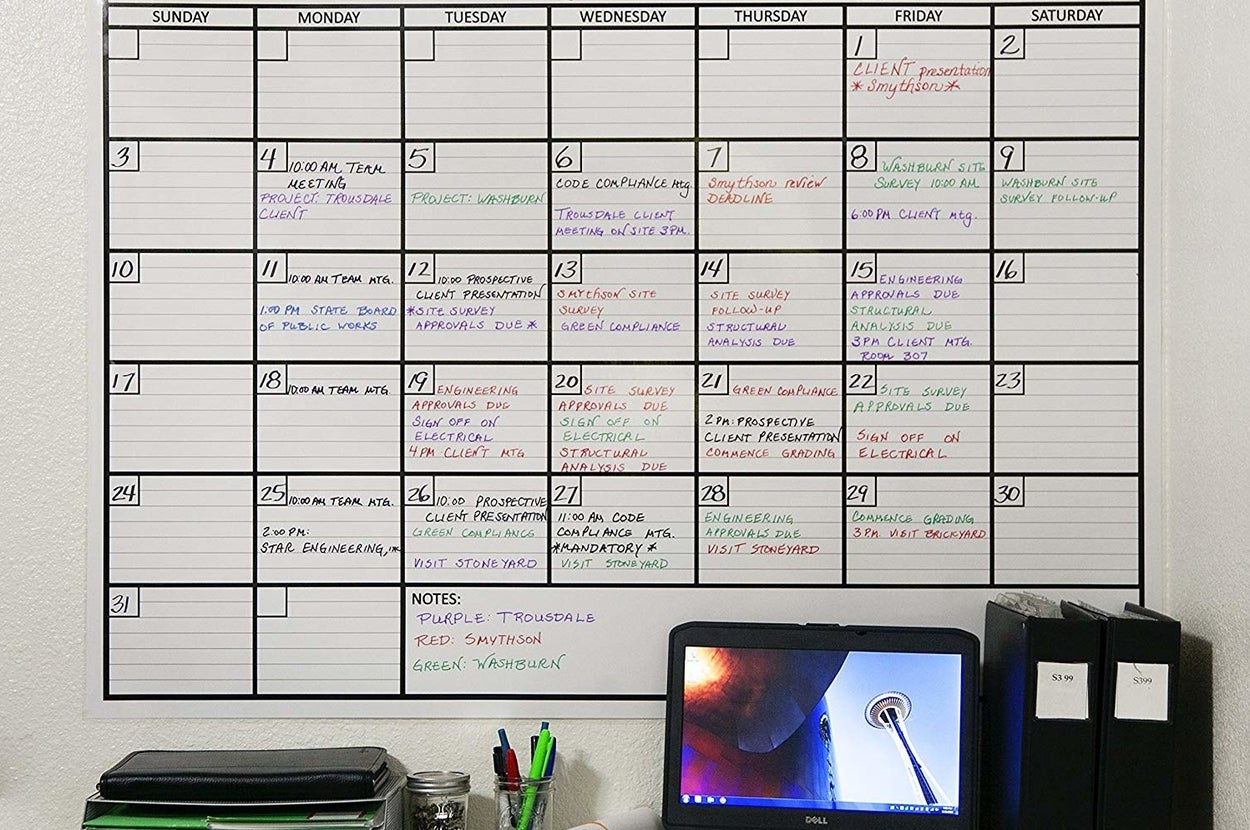 SUNDAY MONDAY TUESDAY WEDNESDAY THURSDAY FRIDAY SATURDAY
1
CLIENT presentation
*Smythson*
2
3
4 10:00 AM TEAM
MEETING
PROJECT: TROUSDALE
CLIENT
5
PROJECT: WASHBURN
6
CODE COMPLIANCE Mtg.
TROUSDALE CLIENT
MEETING ON SITE 3PM.
7
Smythson review
DEADLINE
8 WASHBURN SITE
SURVEY 10:00 AM
6:00 PM CLIENT mtg.
9
WASHBURN SITE
SURVEY FOLLOW-UP
10
11 10:00 AM TEAM MTG.
1:00 PM STATE BOARD
OF PUBLIC WORKS
12 10:00 PROSPECTIVE
CLIENT PRESENTATION
*SITE SURVEY
APPROVALS DUE *
13
SMYTHSON SITE
SURVEY
GREEN COMPLIANCE
14
SITE SURVEY
FOLLOW-UP
STRUCTURAL
ANALYSIS DUE
15 ENGINEERING
APPROVALS DUE
STRUCTURAL
ANALYSIS DUE
3PM CLIENT MTG.
ROOM 307
16
17
18 10:00 AM TEAM MTG.
19 ENGINEERING
APPROVALS DUE
SIGN OFF ON
ELECTRICAL
4PM CLIENT MTG
20 SITE SURVEY
APPROVALS DUE
SIGN OFF ON
ELECTRICAL
STRUCTURAL
ANALYSIS DUE
21 GREEN COMPLIANCE
2 PM: PROSPECTIVE
CLIENT PRESENTATION
COMMENCE GRADING
22 SITE SURVEY
APPROVALS DUE
SIGN OFF ON
ELECTRICAL
23
24
25 10:00 AM TEAM MTG.
2:00 PM:
STAR ENGINEERING,
26 10:00 PROSPECTIVE
CLIENT PRESENTATION
GREEN COMPLIANCE
VISIT STONEYARD
27
11:00 AM CODE
COMPLIANCE MTG.
*MANDATORY *
VISIT STONEYARD
28
ENGINEERING
APPROVALS DUE
VISIT STONEYARD
29
COMMENCE GRADING
3PM VISIT BRICKYARD
30
31
NOTES:
PURPLE: TROUSDALE
RED: SMYTHSON
GREEN: WASHBURN
S3 99
S399
DELL